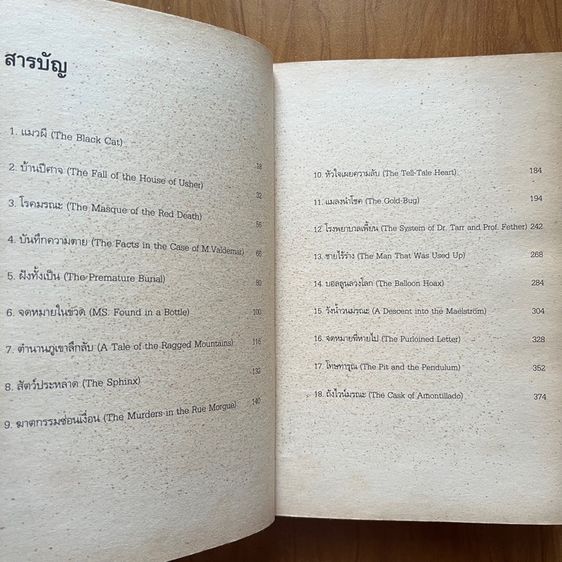 สารบัญ
1. แมวผี (The Black Cat) 18
2. บ้านปีศาจ (The Fall of the House of Usher) 32
3. โรคมรณะ (The Masque of the Red Death) 56
4. บันทึกความตาย (The Facts in the Case of M.Valdemar) 66
5. ฝังทั้งเป็น (The Premature Burial) 80
6. จดหมายในขวด (MS. Found in a Bottle) 100
7. ตำนานภูเขาลึกลับ (A Tale of the Ragged Mountains) 116
8. สัตว์ประหลาด (The Sphinx) 132
9. ฆาตกรรมซ่อนเงื่อน (The Murders in the Rue Morgue) 140
10. หัวใจเผยความลับ (The Tell-Tale Heart) 184
11. แมลงนำโชค (The Gold-Bug) 194
12 โรงพยาบาลเพี้ยน (The System of Dr. Tarr and Prof. Fether) 242
13. ชายไร้ร่าง (The Man That Was Used Up) 268
14. บอลลูนลวงโลก (The Balloon Hoax) 284
15. วังน้ำวนมรณะ (A Descent into the Maelström) 304
16. จดหมายที่หายไป (The Purloined Letter) 328
17. โทษทารุณ (The Pit and the Pendulum) 352
18. ถังไวน์มรณะ (The Cask of Amontillado) 374